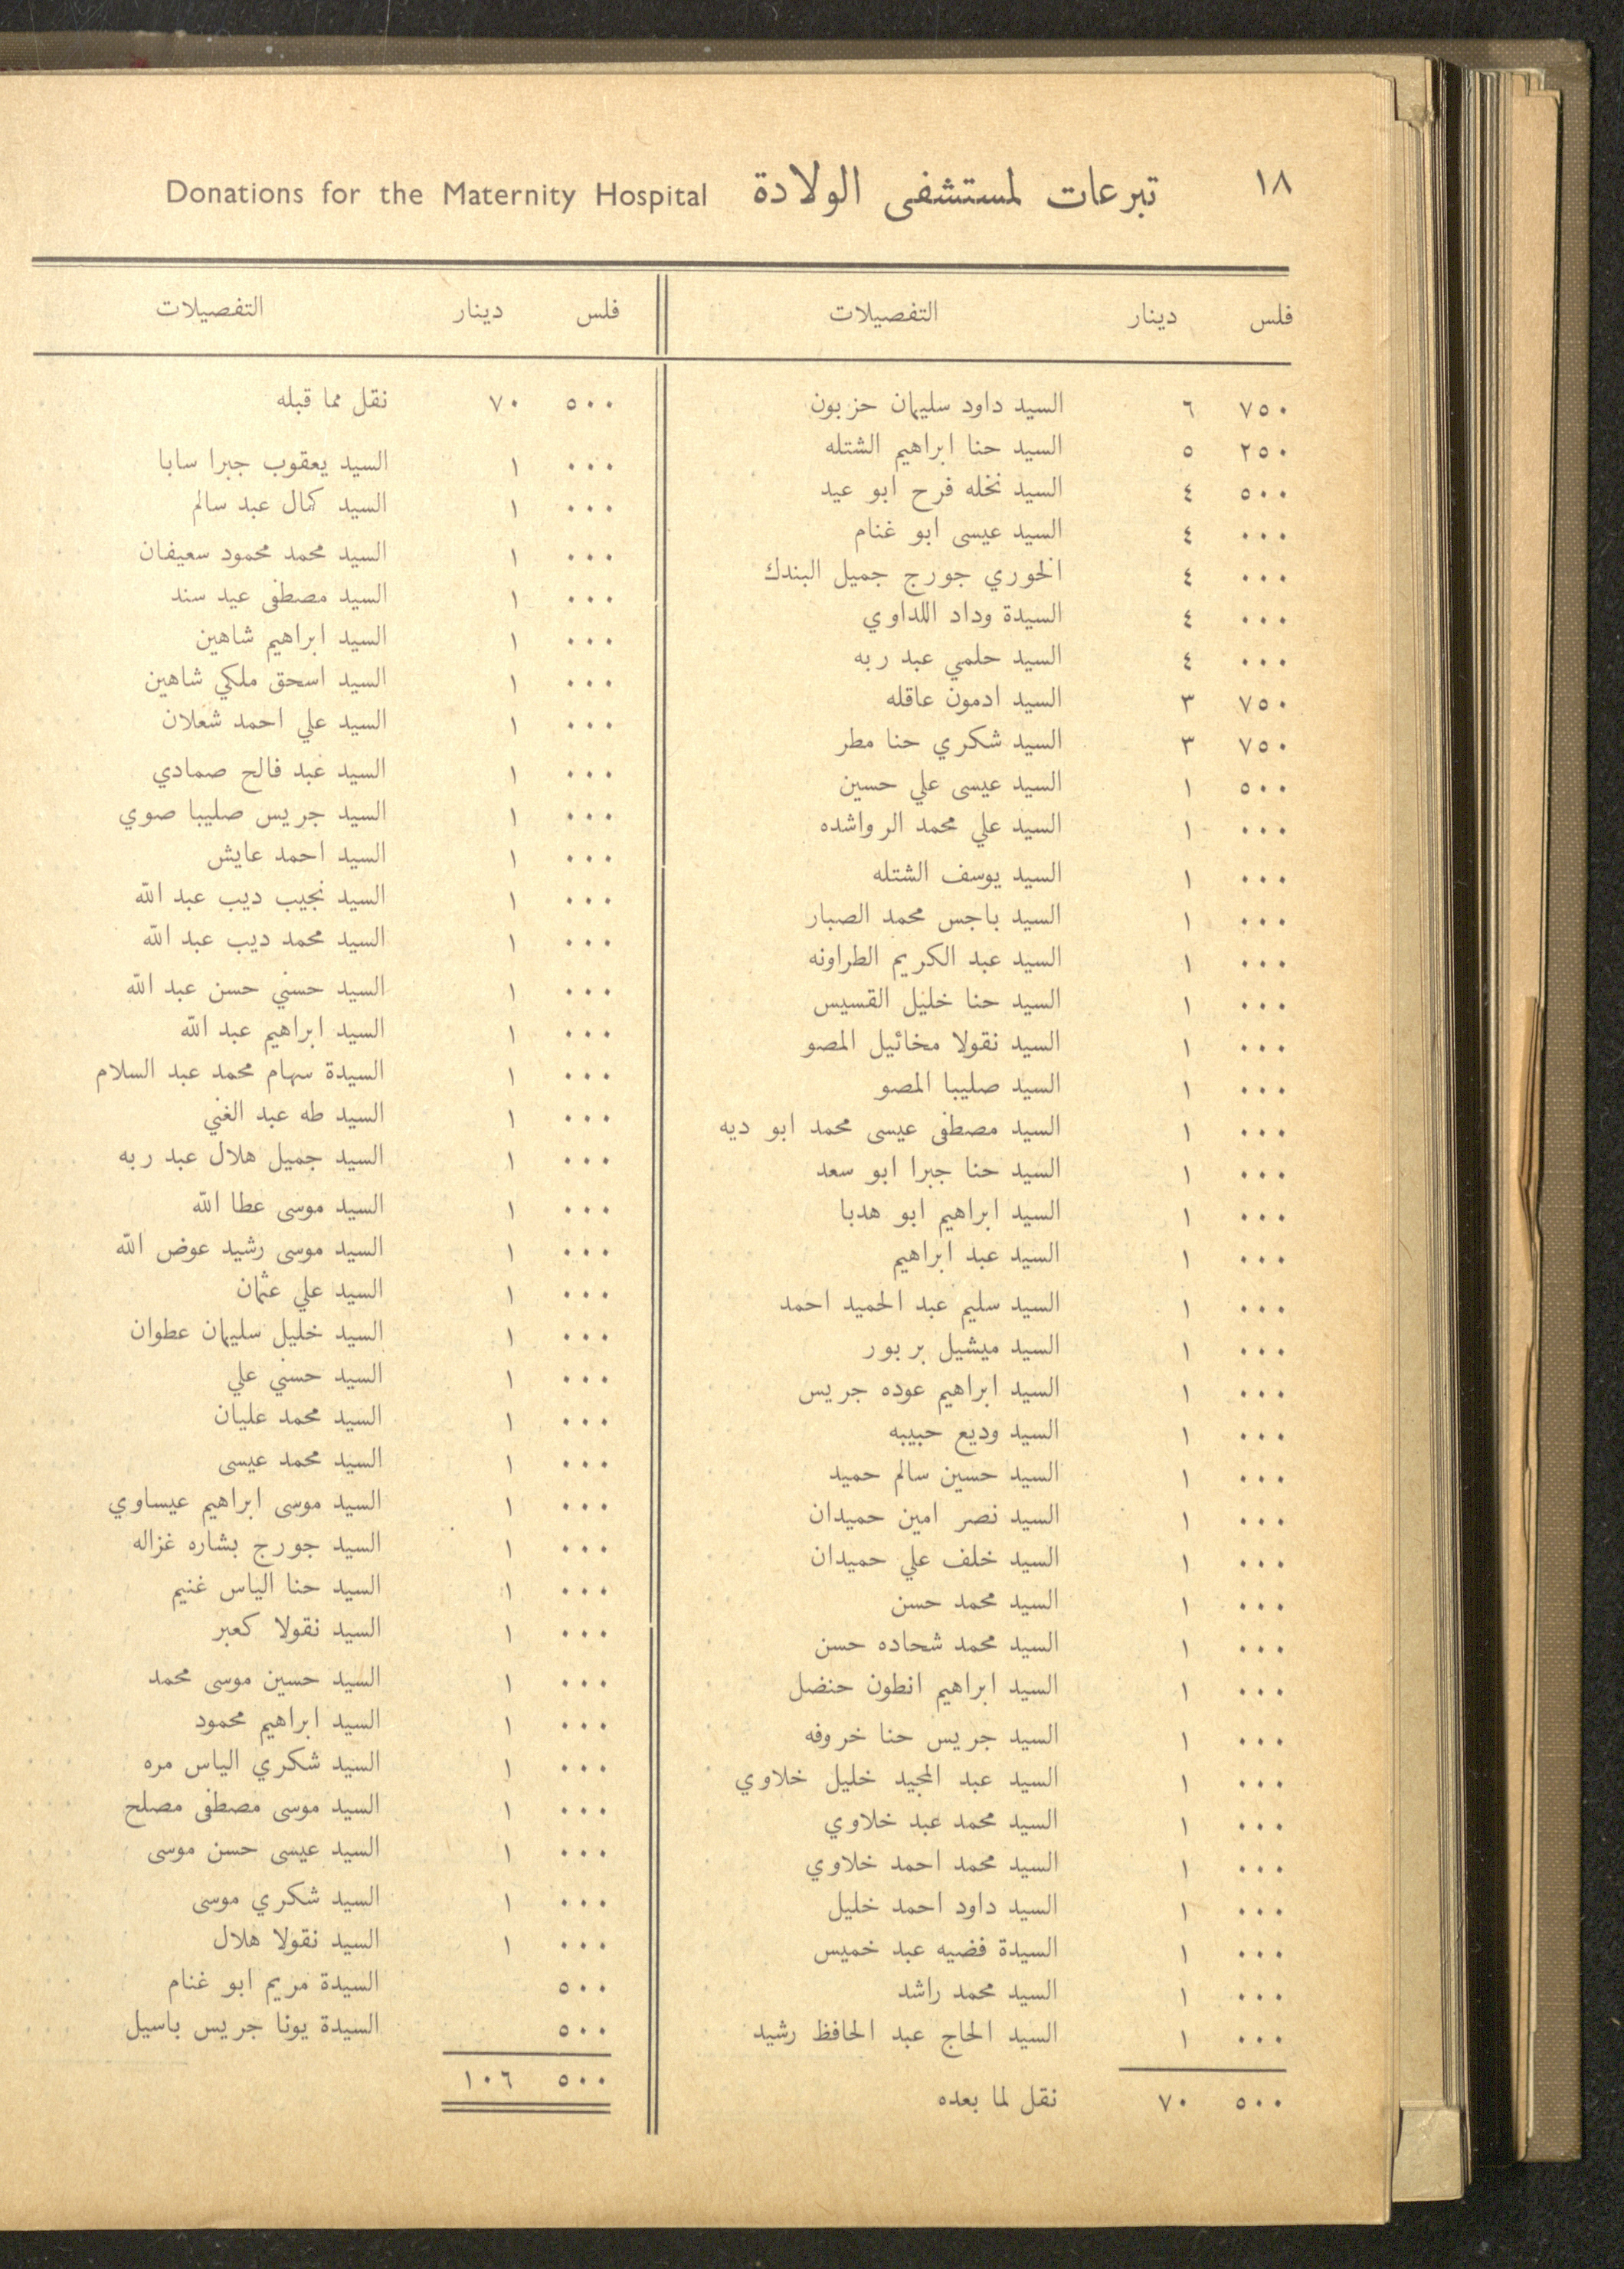 ١٨ تبرعات لمستشفى الولادة Donations for the Maternity Hospital
فلس دينار التفصيلات
٧٥٠ ٦ السيد داود سليمان حزبون
٢٥٠ ٥ السيد حنا ابراهيم الشتله
٥٠٠ ٤ السيد نخله فرح ابو عيد
٠٠٠ ٤ السيد عيسى ابو غنام
٠٠٠ ٤ الخوري جورج جميل البندك
٠٠٠ ٤ السيدة وداد اللداوي
٠٠٠ ٤ السيد حلمي عبد ربه
٧٥٠ ٣ السيد ادمون عاقله
٧٥٠ ٣ السيد شكري حنا مطر
٥٠٠ ١ السيد عيسى علي حسين
٠٠٠ ١ السيد علي محمد الرواشده
٠٠٠ ١ السيد يوسف الشتله
٠٠٠ ١ السيد باجس محمد الصبار
٠٠٠ ١ السيد عبد الكريم الطراونه
٠٠٠ ١ السيد حنا خليل القسيس
٠٠٠ ١ السيد نقولا مخائيل المصو
٠٠٠ ١ السيد صليبا المصو
٠٠٠ ١ السيد مصطفى عيسى محمد ابو ديه
٠٠٠ ١ السيد حنا جبرا ابو سعد
٠٠٠ ١ السيد ابراهيم ابو هدبا
٠٠٠ ١ السيد عبد ابراهيم
٠٠٠ ١ السيد سليم عبد الحميد احمد
٠٠٠ ١ السيد ميشيل بربور
٠٠٠ ١ السيد ابراهيم عوده جريس
٠٠٠ ١ السيد وديع حبيبه
٠٠٠ ١ السيد حسين سالم حميد
٠٠٠ ١ السيد نصر امين حميدان
٠٠٠ ١ السيد خلف علي حميدان
٠٠٠ ١ السيد محمد حسن
٠٠٠ ١ السيد محمد شحاده حسن
٠٠٠ ١ السيد ابراهيم انطون حنضل
٠٠٠ ١ السيد جريس حنا خروفه
٠٠٠ ١ السيد عبد المجيد خليل خلاوي
٠٠٠ ١ السيد محمد عبد خلاوي
٠٠٠ ١ السيد محمد احمد خلاوي
٠٠٠ ١ السيد داود احمد خليل
٠٠٠ ١ السيدة فضيه عبد خميس
٠٠٠ ١ السيد محمد راشد
٠٠٠ ١ السيد الحاج عبد الحافظ رشيد
٥٠٠ ٧٠ نقل لما بعده
فلس دينار التفصيلات
٥٠٠ ٧٠ نقل مما قبله
٠٠٠ ١ السيد يعقوب جبرا سابا
٠٠٠ ١ السيد كمال عبد سالم
٠٠٠ ١ السيد محمد محمود سعيفان
٠٠٠ ١ السيد مصطفى عيد سند
٠٠٠ ١ السيد ابراهيم شاهين
٠٠٠ ١ السيد اسحق ملكي شاهين
٠٠٠ ١ السيد علي احمد شعلان
٠٠٠ ١ السيد عبد فالح صمادي
٠٠٠ ١ السيد جريس صليبا صوي
٠٠٠ ١ السيد احمد عايش
٠٠٠ ١ السيد نجيب ديب عبد الله
٠٠٠ ١ السيد محمد ديب عبد الله
٠٠٠ ١ السيد حسني حسن عبد الله
٠٠٠ ١ السيد ابراهيم عبد الله
٠٠٠ ١ السيدة سهام محمد عبد السلام
٠٠٠ ١ السيد طه عبد الغني
٠٠٠ ١ السيد جميل هلال عبد ربه
٠٠٠ ١ السيد موسى عطا الله
٠٠٠ ١ السيد موسى رشيد عوض الله
٠٠٠ ١ السيد علي عثمان
٠٠٠ ١ السيد خليل سليمان عطوان
٠٠٠ ١ السيد حسني علي
٠٠٠ ١ السيد محمد عليان
٠٠٠ ١ السيد محمد عيسى
٠٠٠ ١ السيد موسى ابراهيم عيساوي
٠٠٠ ١ السيد جورج بشاره غزاله
٠٠٠ ١ السيد حنا الياس غنيم
٠٠٠ ١ السيد نقولا كعبر
٠٠٠ ١ السيد حسين موسى محمد
٠٠٠ ١ السيد ابراهيم محمود
٠٠٠ ١ السيد شكري الياس مره
٠٠٠ ١ السيد موسى مصطفى مصلح
٠٠٠ ١ السيد عيسى حسن موسى
٠٠٠ ١ السيد شكري موسى
٠٠٠ ١ السيد نقولا هلال
٥٠٠ السيدة مريم ابو غنام
٥٠٠ السيدة يونا جريس باسيل
٥٠٠ ١٠٦